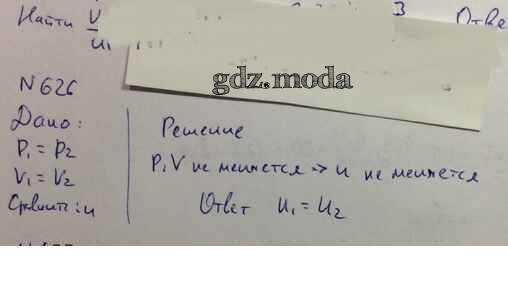 Найти V
u₁
3
Отве
gdz.moda
N 626
Дано:
P₁ = P₂
V₁ = V₂
Сравнить: u
Решение
P, V не меняется => u не меняется
Ответ u₁ = u₂